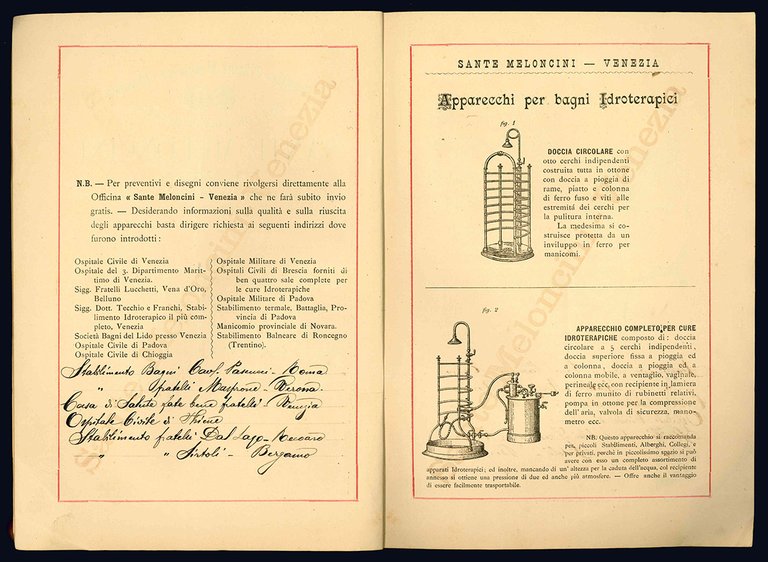 N.B. — Per preventivi e disegni conviene rivolgersi direttamente alla
Officina « Sante Meloncini - Venezia » che ne farà subito invio
gratis. — Desiderando informazioni sulla qualità e sulla riuscita
degli apparecchi basta dirigere richiesta ai seguenti indirizzi dove
furono introdotti :
Ospitale Civile di Venezia
Ospitale del 3. Dipartimento Marit-
timo di Venezia.
Sigg. Fratelli Lucchetti, Vena d'Oro,
Belluno
Sigg. Dott. Tecchio e Franchi, Stabi-
limento Idroterapico il più com-
pleto, Venezia
Società Bagni del Lido presso Venezia
Ospitale Civile di Padova
Ospitale Civile di Chioggia
Ospitale Militare di Venezia
Ospitali Civili di Brescia forniti di
ben quattro sale complete per
le cure Idroterapiche
Ospitale Militare di Padova
Stabilimento termale, Battaglia, Pro-
vincia di Padova
Manicomio provinciale di Novara.
Stabilimento Balneare di Roncegno
(Trentino).
Stabilimento Bagni Cav. - Roma
" fratelli - Verona
Casa di Salute fate bene fratelli - Venezia
Ospitale Civile di Thiene
Stabilimento fratelli Dal Lago - Recoaro
" " - Bergamo
SANTE MELONCINI — VENEZIA
Apparecchi per bagni Idroterapici
fig. 1
DOCCIA CIRCOLARE con
otto cerchi indipendenti
costruita tutta in ottone
con doccia a pioggia di
rame, piatto e colonna
di ferro fuso e viti alle
estremità dei cerchi per
la pulitura interna.
La medesima si co-
struisce protetta da un
inviluppo in ferro per
manicomi.
fig. 2
APPARECCHIO COMPLETO PER CURE
IDROTERAPICHE composto di : doccia
circolare a 5 cerchi indipendenti,
doccia superiore fissa a pioggia ed
a colonna, doccia a pioggia ed a
colonna mobile, a ventaglio, vaginale,
perineale ecc. con recipiente in lamiera
di ferro munito di rubinetti relativi,
pompa in ottone per la compressione
dell'aria, valvola di sicurezza, mano-
metro ecc.
NB. Questo apparecchio si raccomanda
per, piccoli Stabilimenti, Alberghi, Collegi, e
per privati, perchè in piccolissimo spazio si può
avere con esso un completo assortimento di
apparati Idroterapici; ed inoltre, mancando di un'altezza per la caduta dell'acqua, col recipiente
annesso si ottiene una pressione di due ed anche più atmosfere. — Offre anche il vantaggio
di essere facilmente trasportabile.